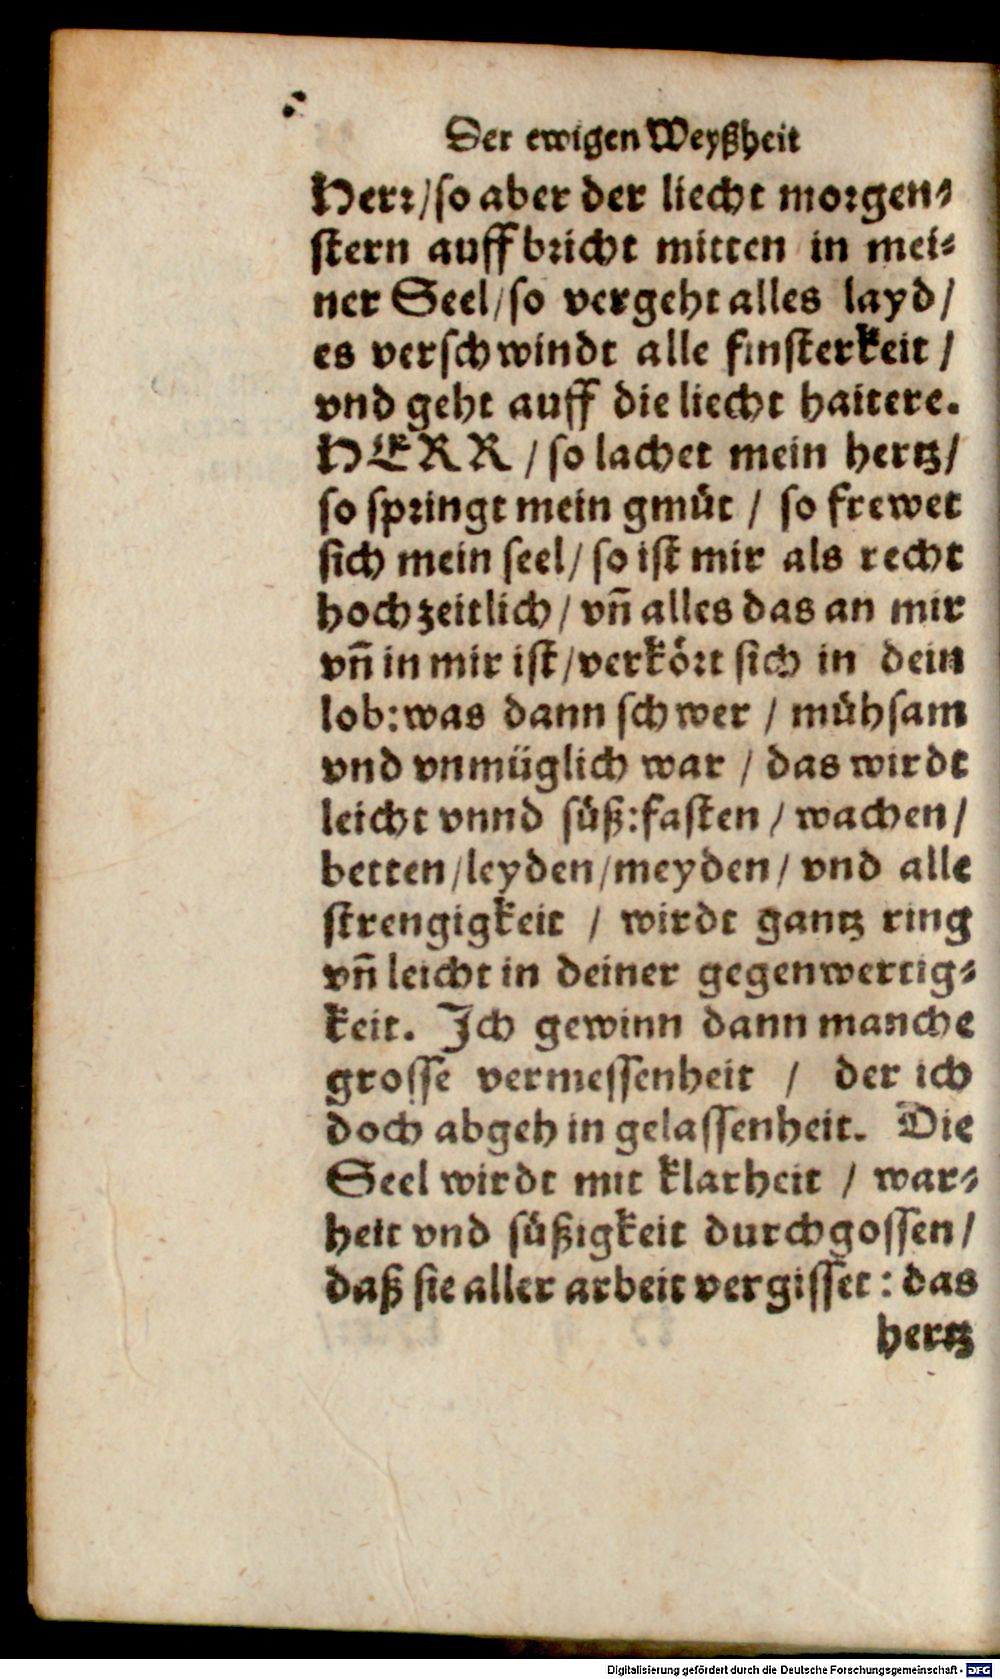 Der ewigen Weyßheit
Herr/so aber der liecht morgen-
stern auff bricht mitten in mei-
ner Seel/so vergeht alles layd/
es verschwindt alle finsterkeit/
vnd geht auff die liecht haitere.
HERR/so lachet mein hertz/
so springt mein gmüt / so frewet
sich mein seel/so ist mir als recht
hochzeitlich/vn̄ alles das an mir
vn̄ in mir ist/verkört sich in dein
lob:was dann schwer / mühsam
vnd vnmüglich war / das wirdt
leicht vnnd süß:fasten / wachen/
betten/leyden/meyden/ vnd alle
strengigkeit / wirdt gantz ring
vn̄ leicht in deiner gegenwertig-
keit. Ich gewinn dann manche
grosse vermessenheit / der ich
doch abgeh in gelassenheit. Die
Seel wirdt mit klarheit / war-
heit vnd süßigkeit durchgossen/
daß sie aller arbeit vergisset: das
hertz
Digitalisierung gefördert durch die Deutsche Forschungsgemeinschaft - DFG